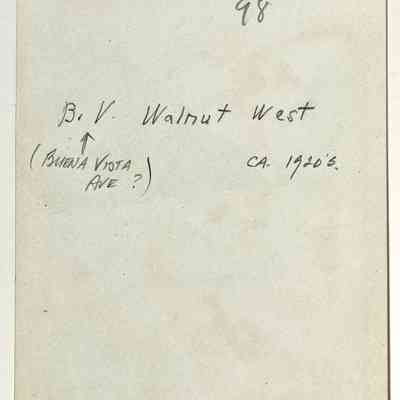 98
B. V. Walnut West
(BUENA VISTA CA. 1920's.
AVE ?)